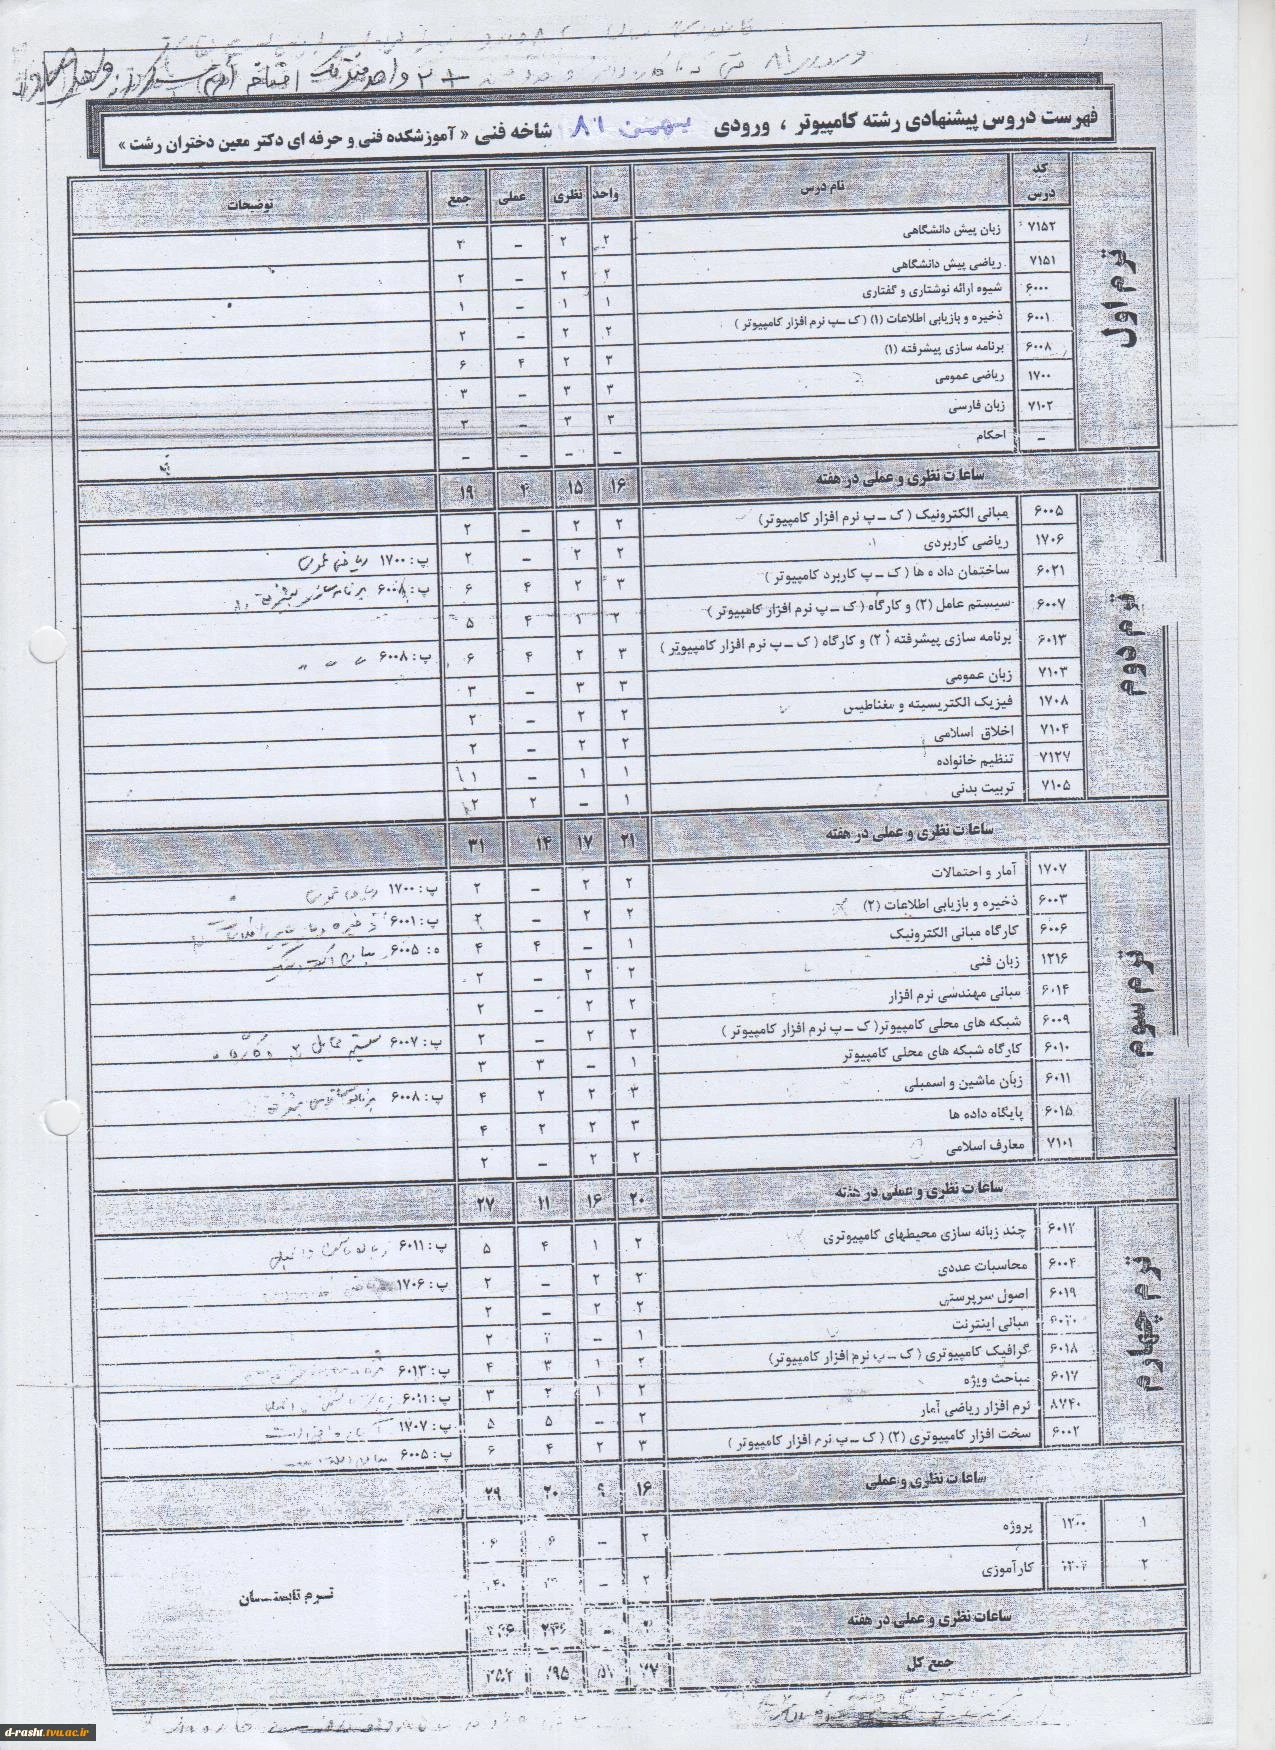 + ۲ واحد
فهرست دروس پیشنهادی رشته کامپیوتر ، ورودی بهمن ۸۱ شاخه فنی « آموزشکده فنی و حرفه ای دکتر معین دختران رشت »
کد درس نام درس واحد نظری عملی جمع توضیحات
ترم اول
۷۱۵۲ زبان پیش دانشگاهی ۲ ۲ – ۲
۷۱۵۱ ریاضی پیش دانشگاهی ۲ ۲ – ۲
۶۰۰۰ شیوه ارائه نوشتاری و گفتاری ۱ ۱ – ۱
۶۰۰۱ ذخیره و بازیابی اطلاعات (۱) ( ک ـ پ نرم افزار کامپیوتر ) ۲ ۲ – ۲
۶۰۰۸ برنامه سازی پیشرفته (۱) ۳ ۲ ۴ ۶
۱۷۰۰ ریاضی عمومی ۳ ۳ – ۳
۷۱۰۲ زبان فارسی ۳ ۳ – ۳
– احکام – – – –
ساعات نظری و عملی در هفته ۱۶ ۱۵ ۴ ۱۹
ترم دوم
۶۰۰۵ مبانی الکترونیک ( ک ـ پ نرم افزار کامپیوتر) ۲ ۲ – ۲
۱۷۰۶ ریاضی کاربردی ۲ ۲ – ۲ پ : ۱۷۰۰ ریاضی عمومی
۶۰۲۱ ساختمان داده ها ( ک ـ پ کاربرد کامپیوتر ) ۳ ۲ ۴ ۶ پ : ۶۰۰۸ برنامه سازی پیشرفته
۶۰۰۷ سیستم عامل (۲) و کارگاه ( ک ـ پ نرم افزار کامپیوتر ) ۲ ۱ ۴ ۵
۶۰۱۳ برنامه سازی پیشرفته (۲) و کارگاه ( ک ـ پ نرم افزار کامپیوتر ) ۳ ۲ ۴ ۶ پ : ۶۰۰۸ " " "
۷۱۰۳ زبان عمومی ۳ ۳ – ۳
۱۷۰۸ فیزیک الکتریسیته و مغناطیس ۲ ۲ – ۲
۷۱۰۴ اخلاق اسلامی ۲ ۲ – ۲
۷۱۲۷ تنظیم خانواده ۱ ۱ – ۱
۷۱۰۵ تربیت بدنی ۱ – ۲ ۲
ساعات نظری و عملی در هفته ۲۱ ۱۷ ۱۴ ۳۱
ترم سوم
۱۷۰۷ آمار و احتمالات ۲ ۲ – ۲ پ : ۱۷۰۰ ریاضی عمومی
۶۰۰۳ ذخیره و بازیابی اطلاعات (۲) ۲ ۲ – ۲ پ : ۶۰۰۱ ذخیره و بازیابی اطلاعات
۶۰۰۶ کارگاه مبانی الکترونیک ۱ – ۴ ۴ ه : ۶۰۰۵ مبانی الکترونیک
۱۲۱۶ زبان فنی ۲ ۲ – ۲
۶۰۱۴ مبانی مهندسی نرم افزار ۲ ۲ – ۲
۶۰۰۹ شبکه های محلی کامپیوتر( ک ـ پ نرم افزار کامپیوتر ) ۲ ۲ – ۲ پ : ۶۰۰۷ سیستم عامل ۲ و کارگاه
۶۰۱۰ کارگاه شبکه های محلی کامپیوتر ۱ – ۳ ۳
۶۰۱۱ زبان ماشین و اسمبلی ۳ ۲ ۲ ۴ پ : ۶۰۰۸ برنامه سازی پیشرفته
۶۰۱۵ پایگاه داده ها ۳ ۲ ۲ ۴
۷۱۰۱ معارف اسلامی ۲ ۲ – ۲
ساعات نظری و عملی در هفته ۲۰ ۱۶ ۱۱ ۲۷
ترم چهارم
۶۰۱۲ چند زبانه سازی محیطهای کامپیوتری ۲ ۱ ۴ ۵ پ : ۶۰۱۱
۶۰۰۴ محاسبات عددی ۲ ۲ – ۲ پ : ۱۷۰۶
۶۰۱۹ اصول سرپرستی ۲ ۲ – ۲
۶۰۲۰ مبانی اینترنت ۱ – ۲ ۲
۶۰۱۸ گرافیک کامپیوتری ( ک ـ پ نرم افزار کامپیوتر) ۲ ۱ ۳ ۴ پ : ۶۰۱۳
۶۰۱۷ مباحث ویژه ۲ ۱ ۲ ۳ پ : ۶۰۱۱
۸۷۴۰ نرم افزار ریاضی آمار ۲ – ۵ ۵ پ : ۱۷۰۷
۶۰۰۲ سخت افزار کامپیوتری (۲) ( ک ـ پ نرم افزار کامپیوتر ) ۳ ۲ ۴ ۶ پ : ۶۰۰۵
ساعات نظری و عملی ۱۶ ۹ ۲۰ ۲۹
۱ ۱۲۰۰ پروژه ۲ – ۶ ۶
۲ کارآموزی ۲ –
ترم تابستان
ساعات نظری و عملی در هفته
جمع کل
d-rasht.tvu.ac.ir